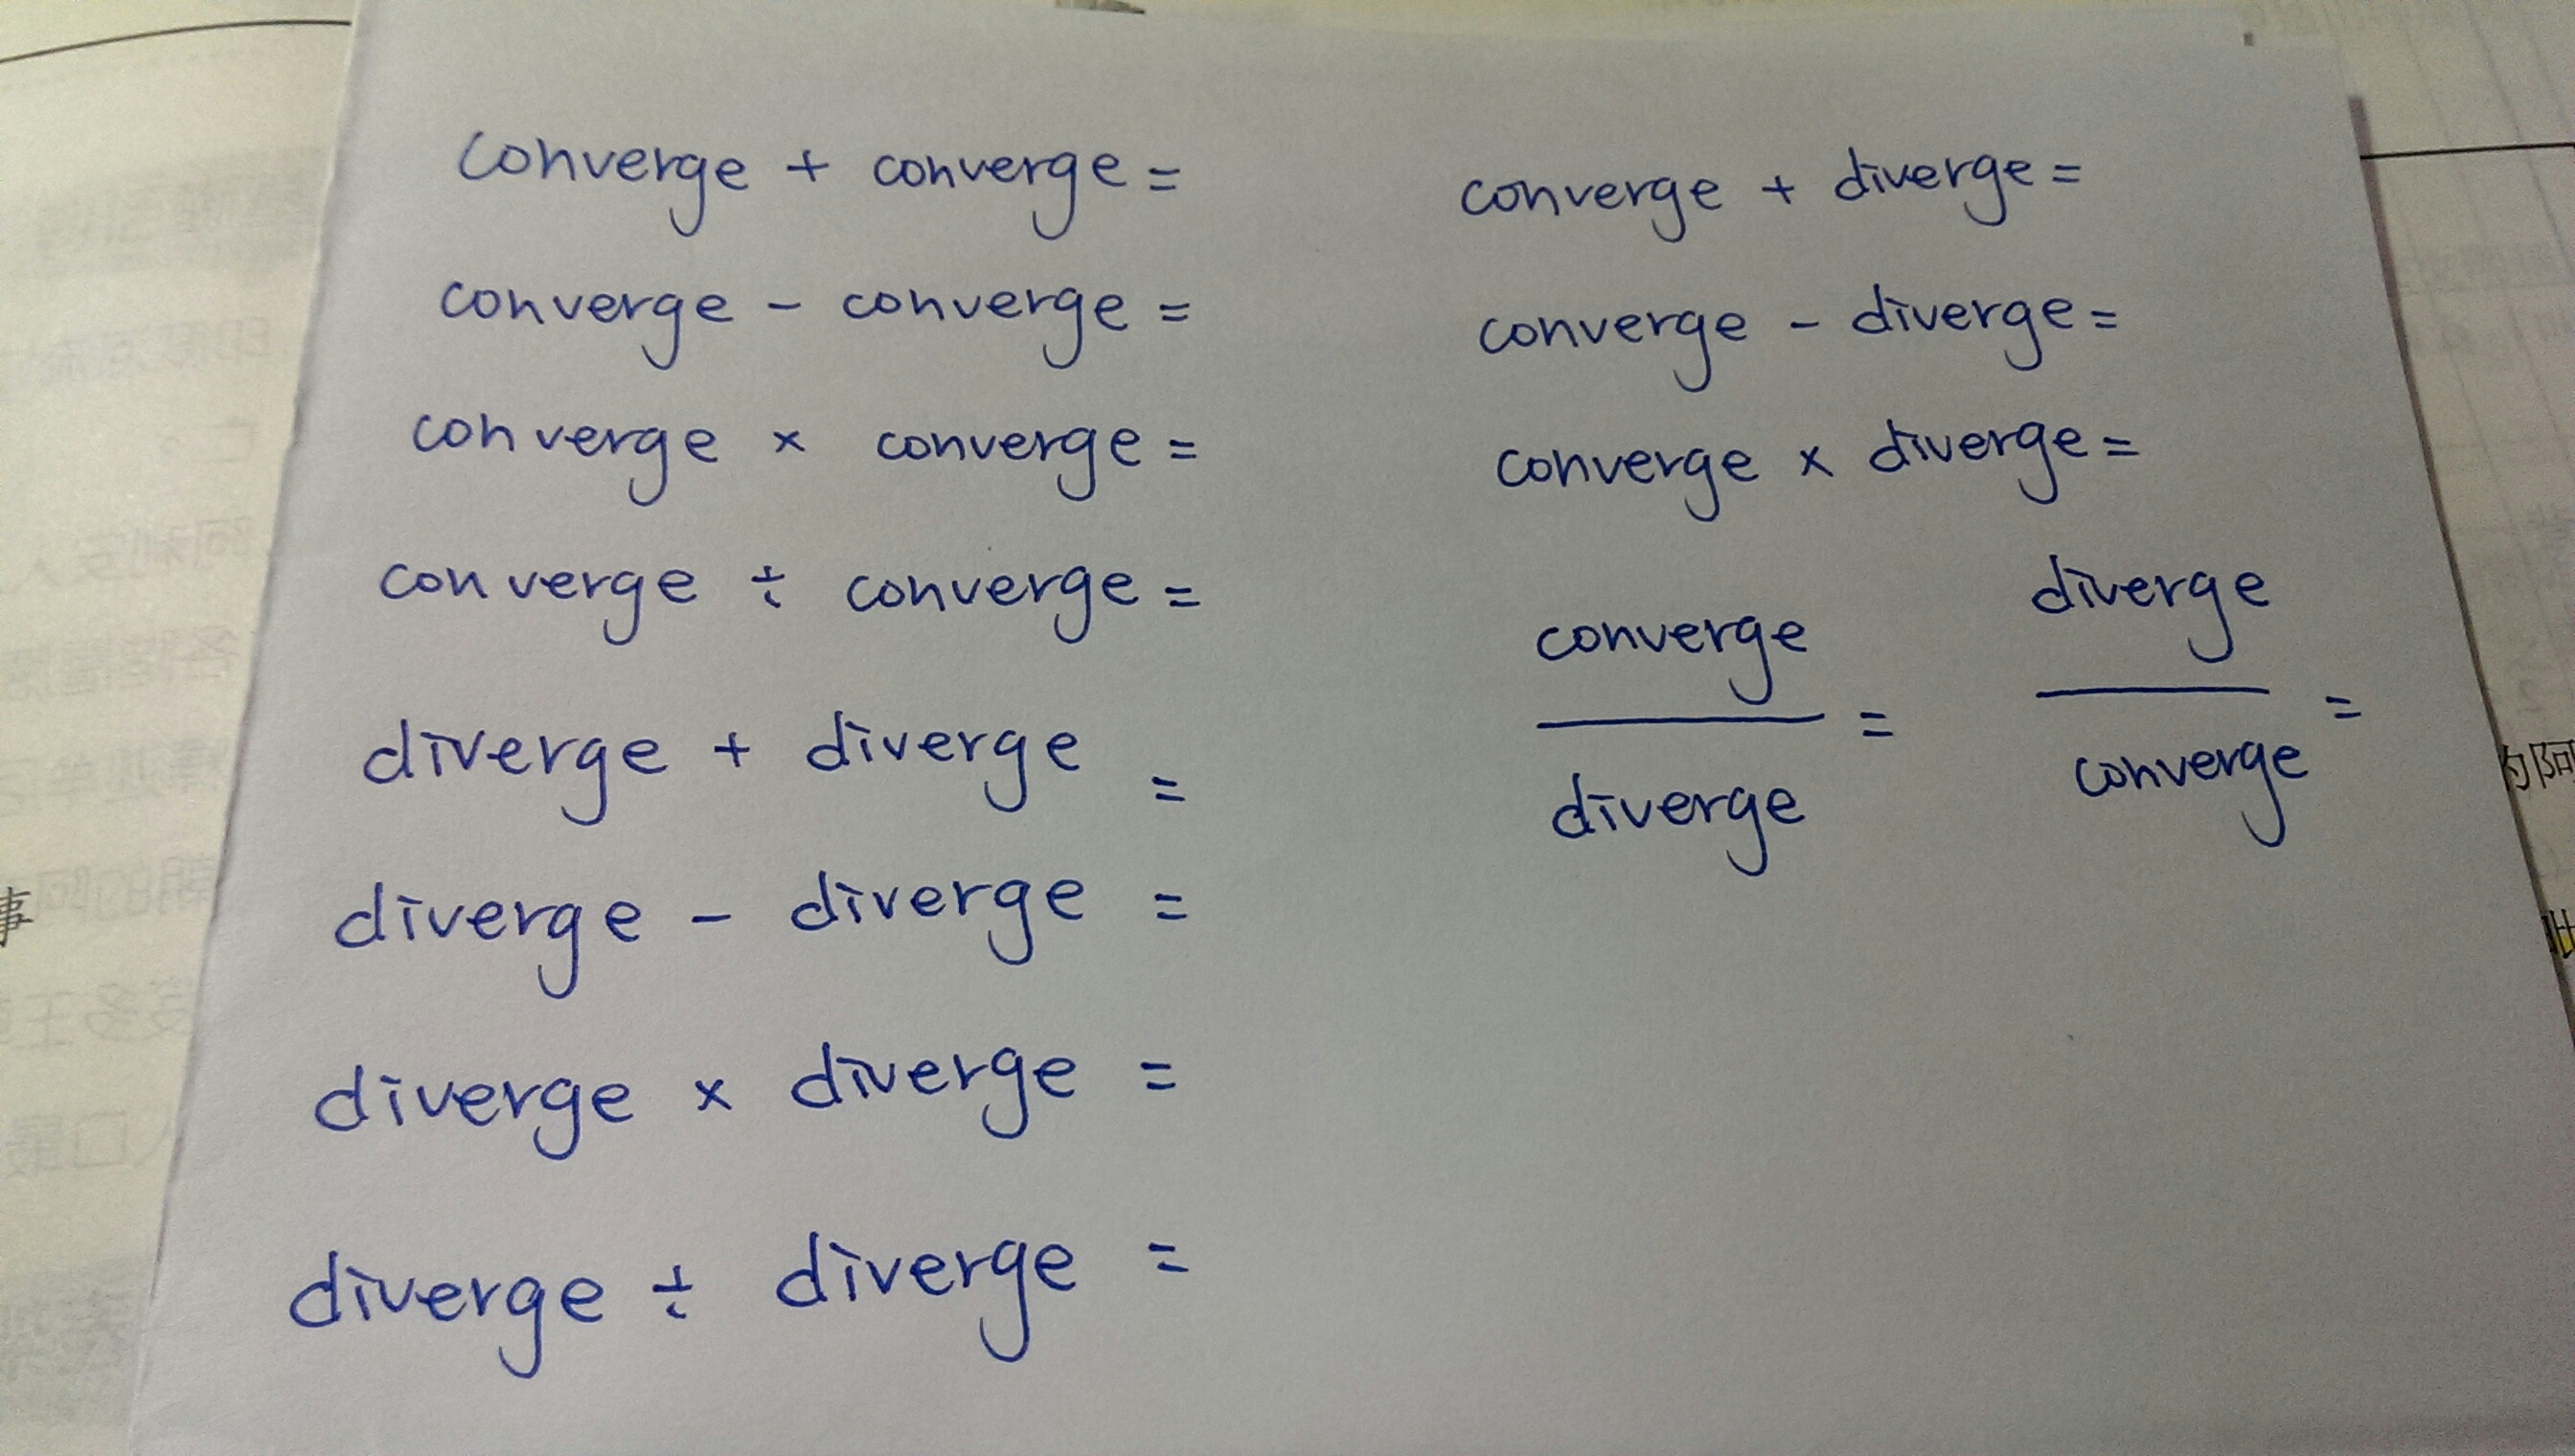 converge + converge =
converge - converge =
converge × converge =
converge ÷ converge =
diverge + diverge =
diverge - diverge =
diverge × diverge =
diverge ÷ diverge =
converge + diverge =
converge - diverge =
converge × diverge =
converge / diverge =
diverge / converge =
事
的阿